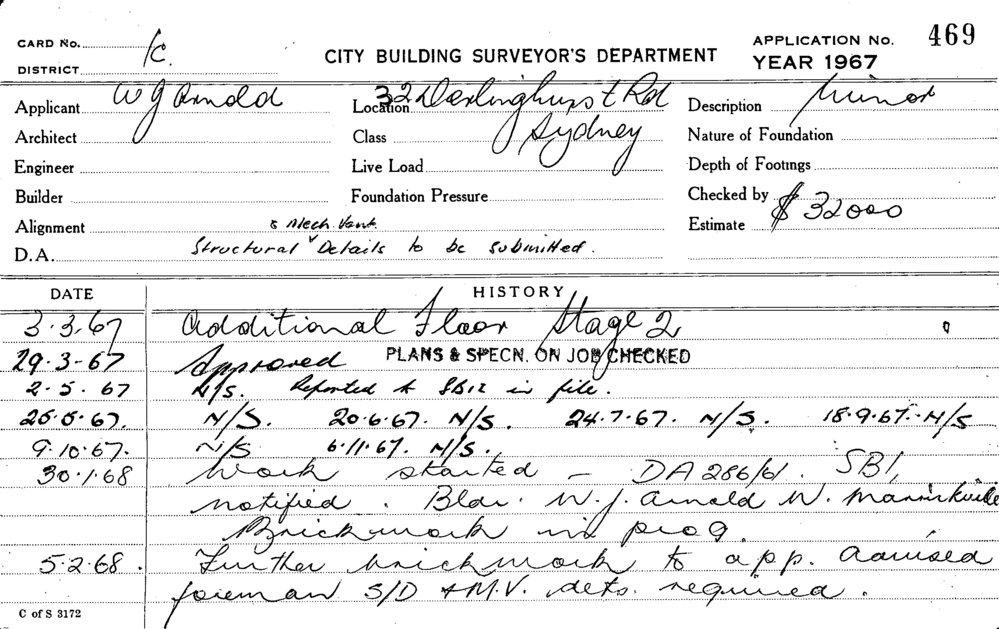 CARD No. 1c. CITY BUILDING SURVEYOR'S DEPARTMENT APPLICATION No. 469
DISTRICT YEAR 1967
Applicant W J Arnold Location 32 Darlinghurst Rd Description Minor
Architect Class Sydney Nature of Foundation
Engineer Live Load Depth of Footings
Builder Foundation Pressure Checked by
Alignment Estimate $32000
& Mech. Vent.
D.A. Structural ˅ Details to be submitted.
DATE HISTORY
3.3.67 Additional Floor Stage 2
29-3-67 Approved PLANS & SPECN. ON JOB CHECKED
2-5.67 N/S. Reported to SB12 in file.
N/S. 20.6.67. N/S. 24.7.67. N/S. 18.9.67.-N/S
9.10.67. N/S 6.11.67. N/S.
30.1.68 Work started - DA 286/61. SB1,
notified. Bldr. W.J. Arnold W. Marrickville
Brickwork in prog.
5.2.68. Further brickwork to app. Advised
foreman S/D & M.V. dets. required.
C of S 3172